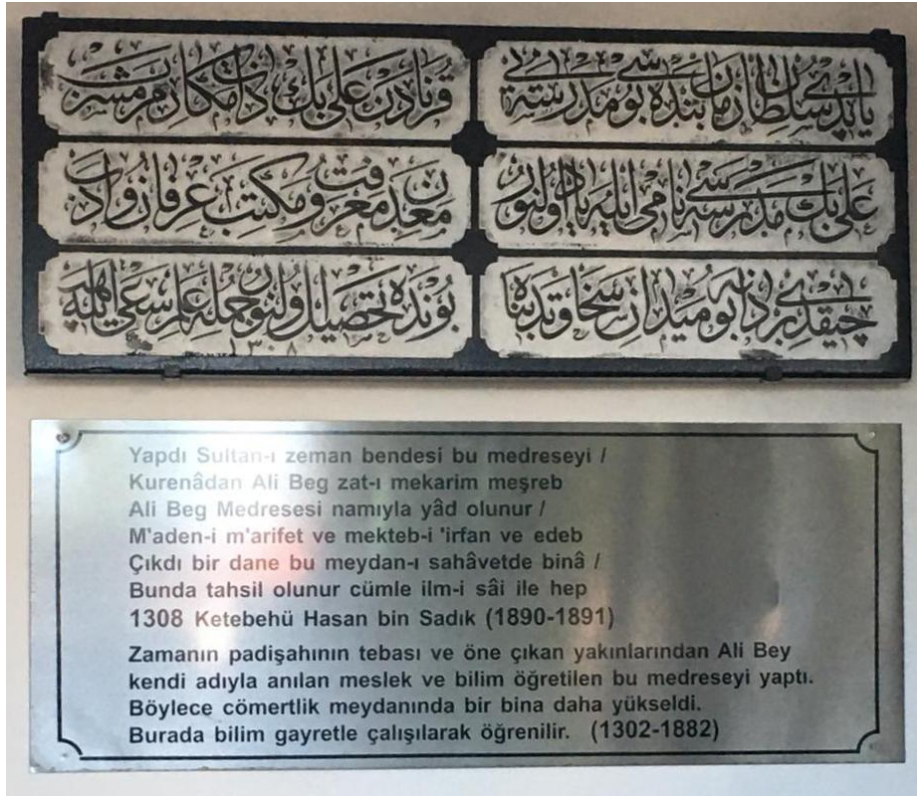 یاپدی سلطان زمان بنده سی بو مدرسه یی
قرنادن علی بك ذات مكارم مشرب
علی بك مدرسه سی نامی ایله یاد اولنور
معدن معرفت و مكتب عرفان و ادب
چیقدی بر دانه بو میدان سخاوتده بنا
بونده تحصیل اولنور جمله علم سعی ایله هپ
١٣٠٨
Yapdı Sultan-ı zeman bendesi bu medreseyi /
Kurenâdan Ali Beg zat-ı mekarim meşreb
Ali Beg Medresesi namıyla yâd olunur /
M'aden-i m'arifet ve mekteb-i 'irfan ve edeb
Çıkdı bir dane bu meydan-ı sahâvetde binâ /
Bunda tahsil olunur cümle ilm-i sâi ile hep
1308 Ketebehü Hasan bin Sadık (1890-1891)
Zamanın padişahının tebası ve öne çıkan yakınlarından Ali Bey
kendi adıyla anılan meslek ve bilim öğretilen bu medreseyi yaptı.
Böylece cömertlik meydanında bir bina daha yükseldi.
Burada bilim gayretle çalışılarak öğrenilir. (1302-1882)